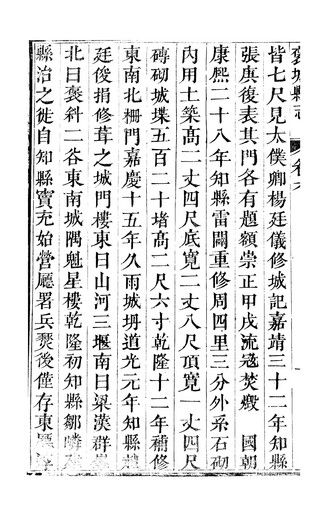 褒城縣志 卷六
皆七尺見太僕卿楊廷儀修城記嘉靖三十二年知縣
張庚復表其門各有題額崇正甲戌流寇焚燬 國朝
康熙二十八年知縣雷闢重修周四里三分外系石砌
內用土築高二丈四尺底寬二丈八尺頂寬一丈四尺
磚砌城堞五百二十堵高二尺六寸乾隆十二年補修
東南北柵門嘉慶十五年久雨城坍道光元年知縣
廷俊捐修葺之城門樓東曰山河三堰南曰梁漢群
北曰褒斜二谷東南城隅魁星樓乾隆初知縣鄒嶙
縣治之徙自知縣竇充始營廳署兵燹後僅存東